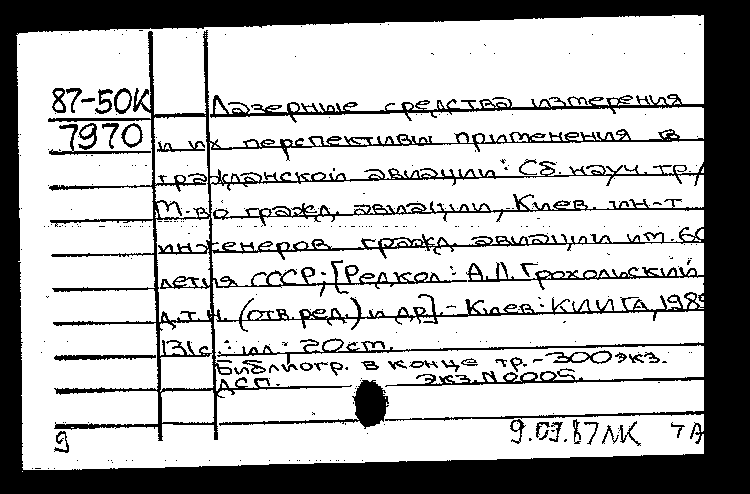 87-50К Лазерные средства измерения
7970 и их перспективы применения в
гражданской авиации: Сб. науч. тр./
М-во гражд. авиации, Киев. ин-т.
инженеров гражд. авиации им. 60
летия СССР; [Редкол.: А.Л. Грохольский
д.т.н. (отв. ред.) и др]. - Киев: КИИГА, 198
131с.: ил; 20ст.
Библиогр. в конце тр. - 300экз.
ДСП. Экз. N0005.
9.03.87 МК ТА
9